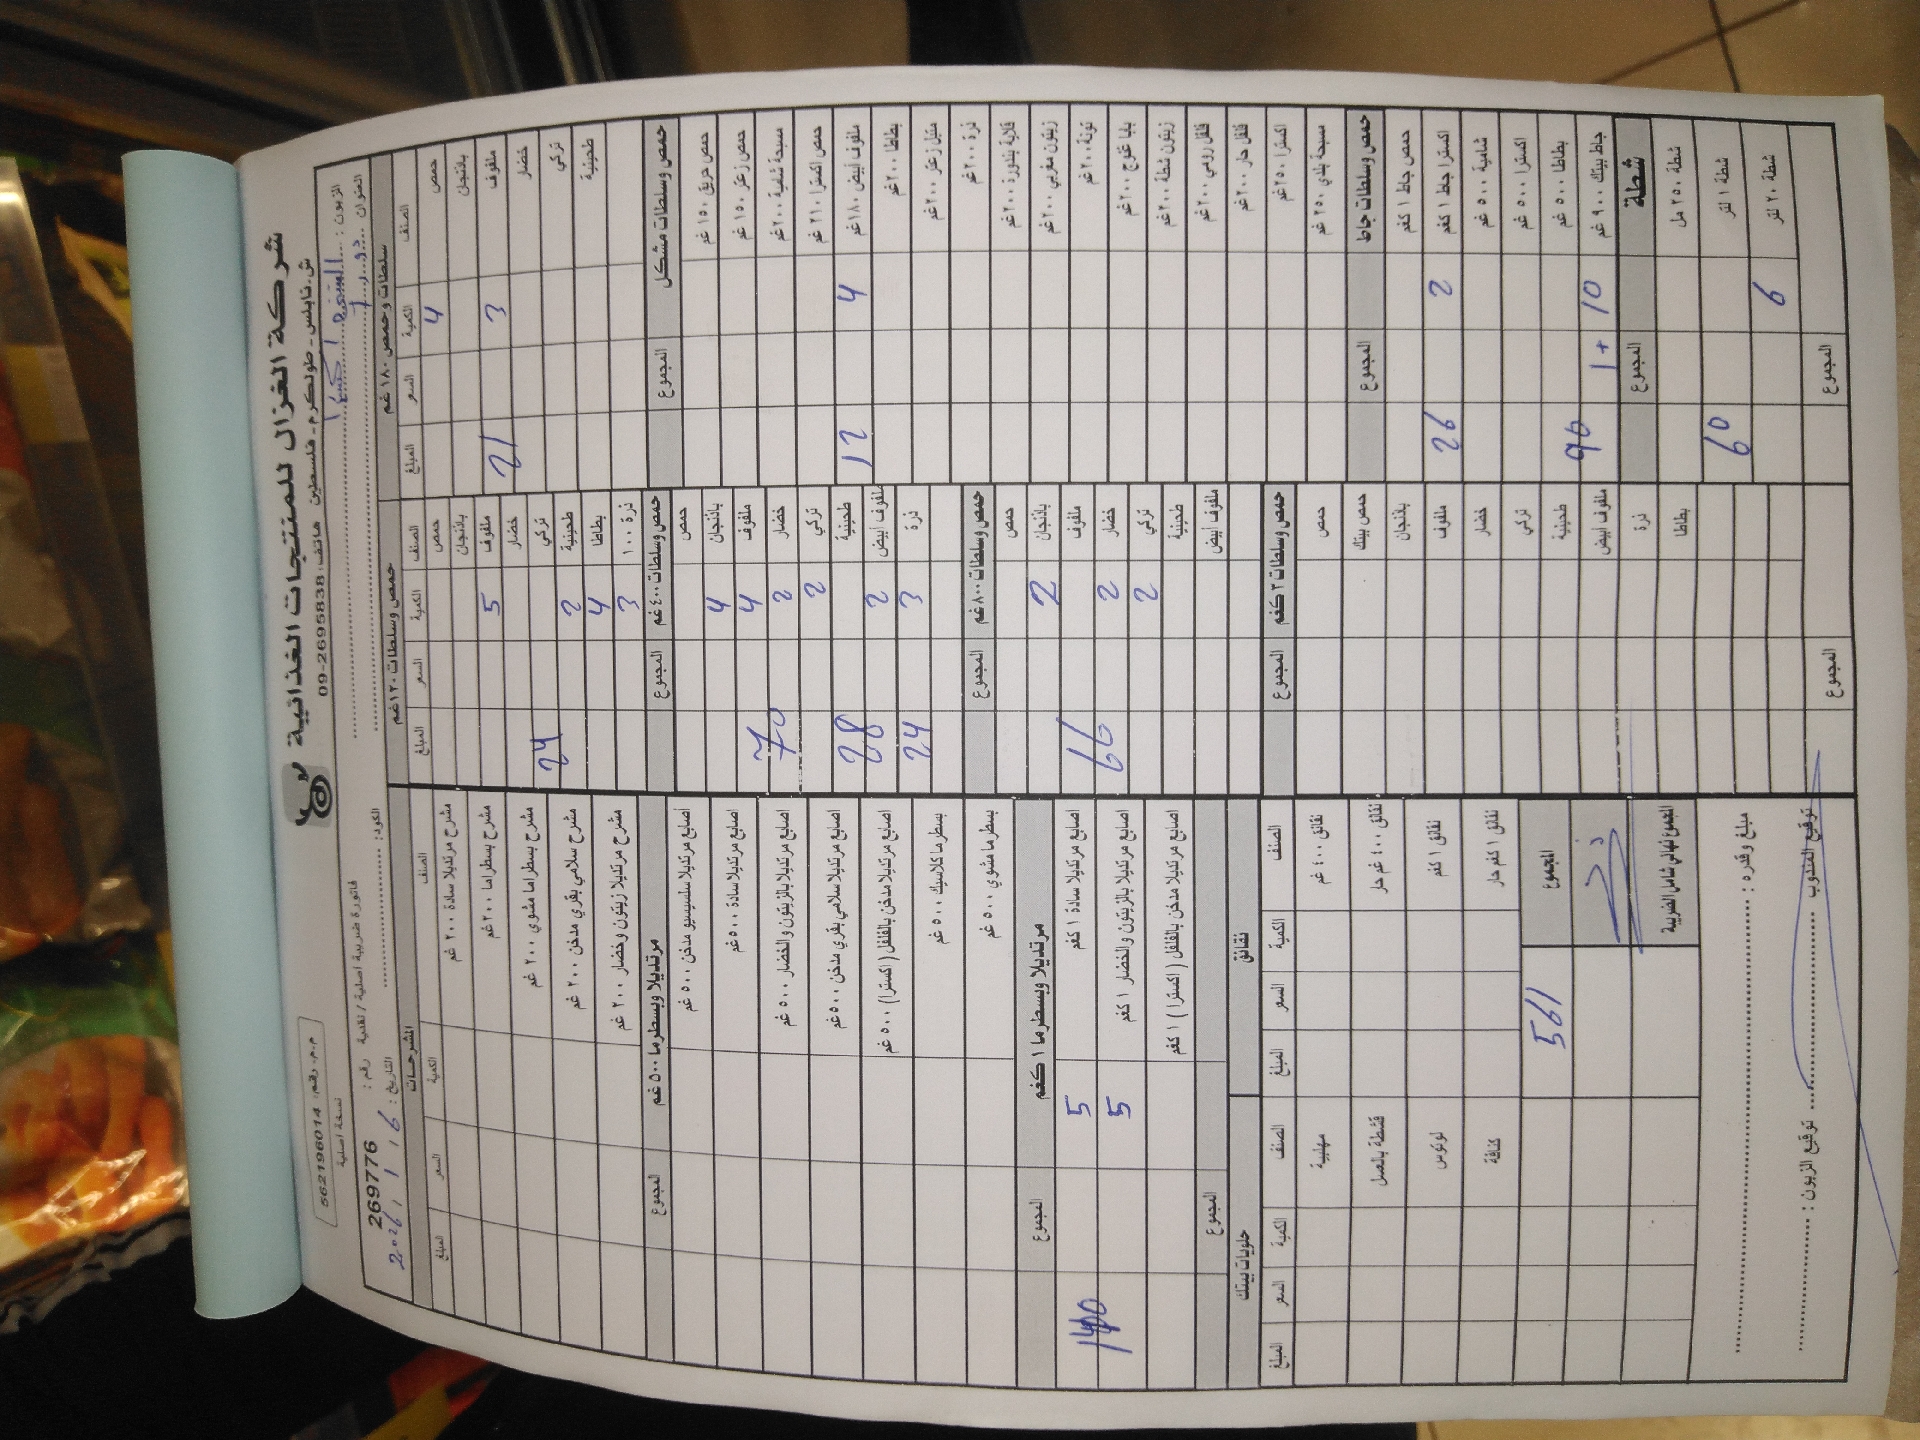 شركة الغزال للمنتجات الغذائية
ش. نابلس - طولكرم - فلسطين هاتف: 09-2695838
م.م. رقم: 562196014
نسخة اصلية
الزبون :
العنوان :
الكود :
فاتورة ضريبية اصلية / نقدية رقم : 269776
التاريخ : 16 / 1 / 2026
سلطات وحمص ١٨٠ غم
الصنف الكمية السعر المبلغ
حمص 4
باذنجان
ملفوف 3 21
خضار
تركي
طحينية
حمص وسلطات مشكل المجموع
حمص حريق ١٥٠ غم
حمص زعتر ١٥٠ غم
مسبحة شامية ٢٠٠ غم
حمص اكسترا ٢١٠ غم
ملفوف أبيض ١٨٠ غم 4 12
بطاطا ٢٠٠ غم
متبل زعتر ٢٠٠ غم
ذرة ٢٠٠ غم
قلاية بندورة ٢٠٠ غم
زيتون مغربي ٢٠٠ غم
تونة ٢٠٠ غم
بابا غنوج ٢٠٠ غم
زيتون شطة ٢٠٠ غم
فلفل رومي ٢٠٠ غم
فلفل حار ٢٠٠ غم
اكسترا ٢٥٠ غم
مسبحة بلدي ٢٥٠ غم
حمص وسلطات جاط المجموع
حمص جاط ١ كغم
اكسترا جاط ١ كغم 2 26
شامية ٥٠٠ غم
اكسترا ٥٠٠ غم
بطاطا ٥٠٠ غم
جاط بيتك ٩٠٠ غم 10 + 1 90
شطة المجموع
شطة ٢٥٠ مل
شطة ١ لتر 60
شطة ٢٠ لتر 6
المجموع
حمص وسلطات ١٢٠ غم
الصنف الكمية السعر المبلغ
حمص
باذنجان
ملفوف 5
خضار
تركي 24
طحينية 2
بطاطا 4
ذرة ١٠٠ 3
حمص وسلطات ٤٠٠ غم المجموع
حمص
باذنجان 4
ملفوف 4
خضار 2 70
تركي 2
طحينية 28
ملفوف أبيض 2
ذرة 3 24
حمص وسلطات ٨٠٠ غم المجموع
حمص
باذنجان 2
ملفوف 66
خضار 2
تركي 2
طحينية
ملفوف أبيض
حمص وسلطات ٣ كغم المجموع
حمص
حمص بيتك
باذنجان
ملفوف
خضار
تركي
طحينية
ملفوف أبيض
ذرة
بطاطا
المجموع
المشرحات
الصنف الكمية السعر المبلغ
مشرح مرتديلا سادة ٢٠٠ غم
مشرح بسطراما ٢٠٠ غم
مشرح بسطراما مشوي ٢٠٠ غم
مشرح سلامي بقري مدخن ٢٠٠ غم
مشرح مرتديلا زيتون وخضار ٢٠٠ غم
مرتديلا وبسطرما ٥٠٠ غم المجموع
أصابع مرتديلا سلسيسيو مدخن ٥٠٠ غم
اصابع مرتديلا سادة ٥٠٠ غم
اصابع مرتديلا بالزيتون و الخضار ٥٠٠ غم
اصابع مرتديلا سلامي بقري مدخن ٥٠٠ غم
اصابع مرتديلا مدخن بالفلفل ( اكسترا ) ٥٠٠ غم
بسطرما كلاسيك ٥٠٠ غم
بسطرما مشوي ٥٠٠ غم
مرتديلا وبسطرما ١ كغم المجموع
اصابع مرتديلا سادة ١ كغم 5
اصابع مرتديلا بالزيتون والخضار ١ كغم 5
اصابع مرتديلا مدخن بالفلفل ( اكسترا ) ١ كغم
المجموع
نقانق
الصنف الكمية السعر المبلغ
نقانق ٤٠٠ غم
نقانق ٤٠٠ غم حار
نقانق ١ كغم
نقانق ١ كغم حار
حلويات بيتك
الصنف الكمية السعر المبلغ
مهلبية
قشطة بالعسل
لوتس
كنافة
المجموع 561
المجموع نهائي شامل الضريبة
مبلغ وقدره :
توقيع المندوب
توقيع الزبون :